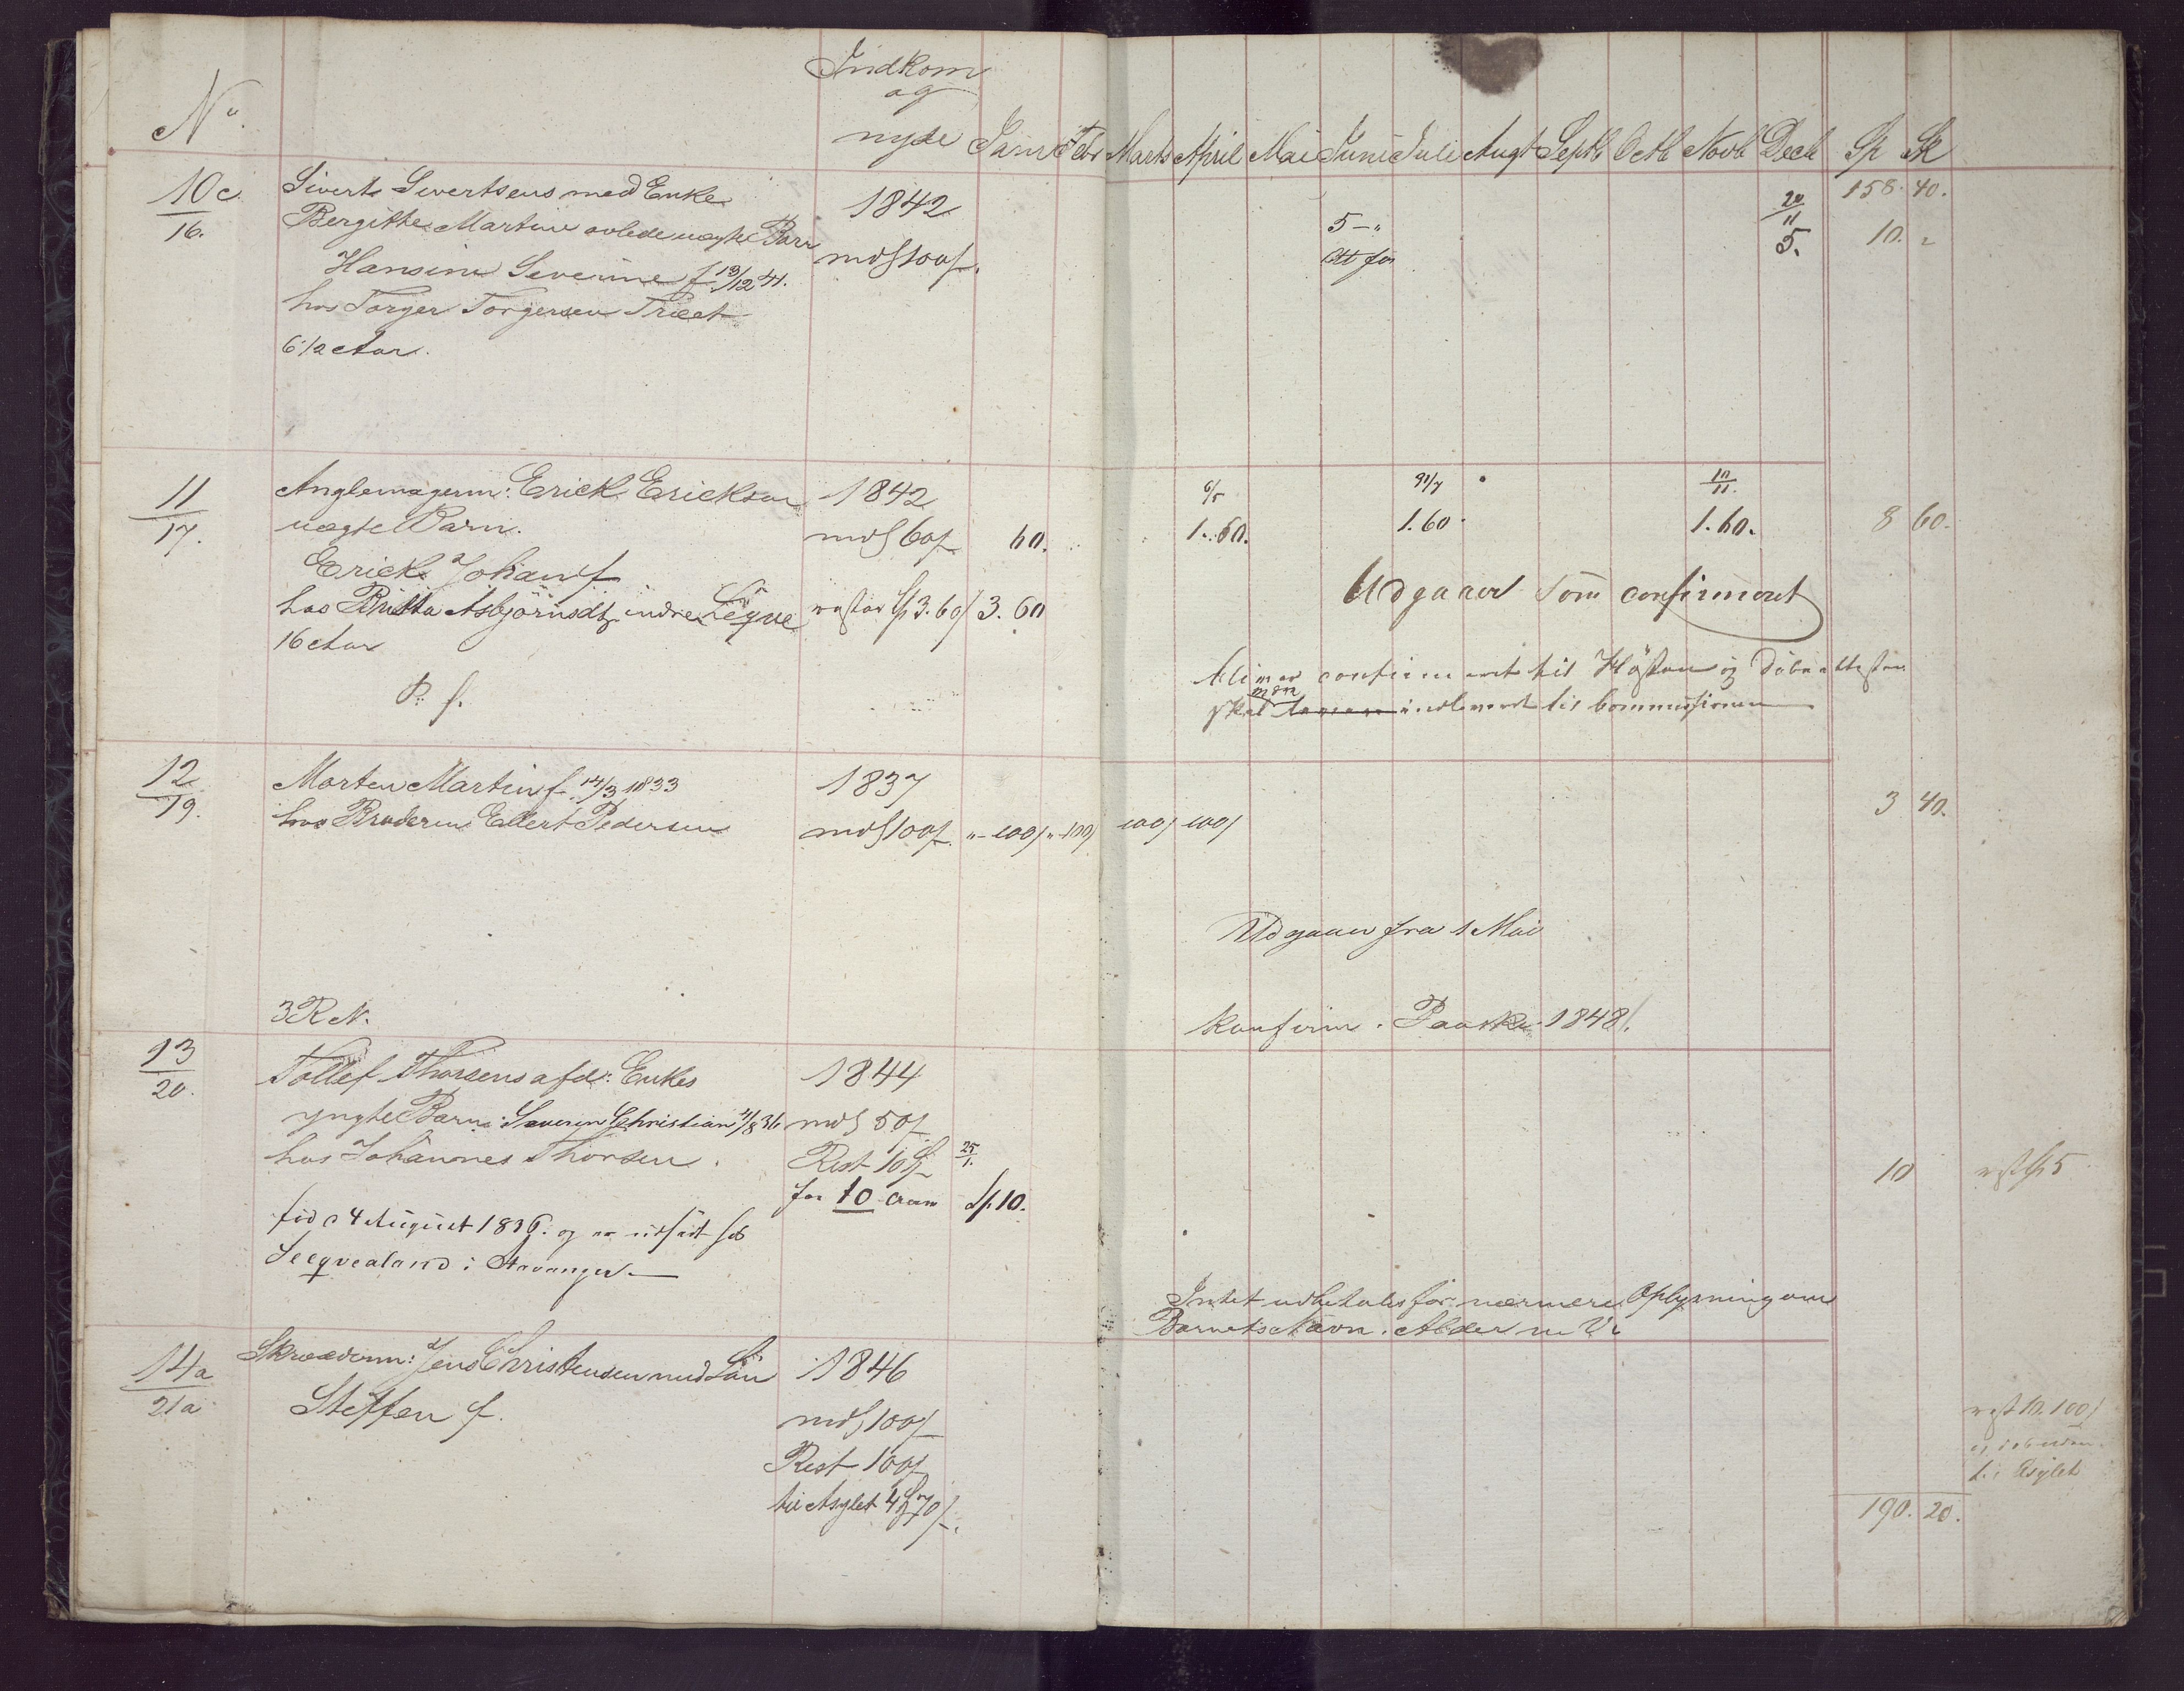 No.
Indkom
og
nyde
Janr Febr Marts April Mai Juni Juli Augt Septb Octb Novb Decb Sp Sk
10c
16.
Sivert Sivertsens med Enke
Bergithe Martine avlede uægte Barn
Hansine Severine f. 13/12 41.
hos Torger Torgersen Træet
6 1/2 Aar.
1842
mdl 100 s.
5 - "
20/11
5.
158. 40.
10. "
11
17.
Anglemagerm: Erick Ericksen
uægte Barn.
Erick Johan f
hos Britta Asbjörnsdtr indre
16 Aar
P. f.
1842
mdl 60 s
restar Sp 3. 60
60.
3. 60
6/5
1. 60.
21/7
1. 60.
11/11.
1. 60.
8 60.
Udgaaer som confirmeret
bliver confirmeret til Høsten og Döbeattesten
skal indleveret til Commissionen
12
19.
Morten Martin f. 14/3 1833
hos Broderen Ellert Pedersen
3 R N.
1837
mdl 100 s.
" - 100 s " - 100 s 100 s 100 s
3 40.
Udgaaer fra 1 Mai
Konfirm. Paaske 1848.
13
20.
Tollef Thorsens afd: Enkes
yngste Barn: Severin Christian 4/8 36
hos Johannes Thorsen.
föd 4 August 1836. og er udsat
i Stavanger
1844
mdl 50 s
Rest 10 Sp
for 10 Aar
25/1.
Sp. 10.
10
rest Sp 5
Intet udbetales för nærmere Oplysning om
Barnets Navn. Alder m. V.
14a
21a
Skrædderm: Jens Christensen med Sön
Steffen f.
1846
mdl 100 s
Rest 100 s
til Asylet 4 Sp 70 s.
rest 10. 100 s
Asylet
190. 20.